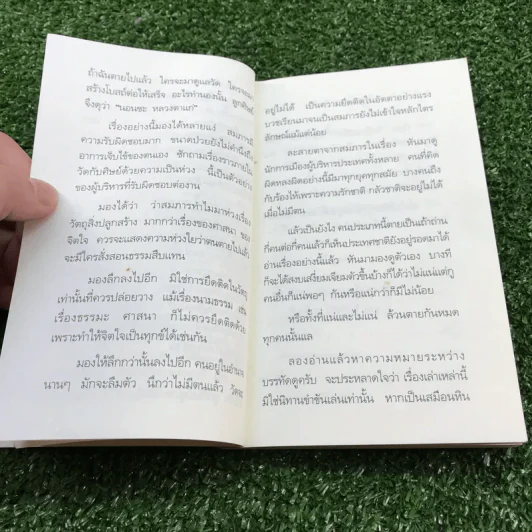 ถ้าฉันตายไปแล้ว ใครจะมาดูแลวัด ใครจะ
สร้างโบสถ์ต่อให้เสร็จ อะไรทำนองนั้น ลูกศิษย์
จึงดุว่า "นอนซะ หลวงตาแก่"
เรื่องอย่างนี้มองได้หลายแง่ สมภารมี
ความรับผิดชอบมาก ขนาดป่วยยังไม่คำนึงถึง
อาการเจ็บไข้ของตนเอง ซักถามเรื่องราวภายใน
วัดกับศิษย์ด้วยความเป็นห่วง นี้เป็นตัวอย่าง
ของผู้บริหารที่รับผิดชอบต่องาน
มองได้ว่า ว่าสมภารทำไมมาห่วงเรื่อง
วัตถุสิ่งปลูกสร้าง มากกว่าเรื่องของศาสนา ของ
จิตใจ ควรจะแสดงความห่วงใยว่าตนตายไปแล้ว
จะมีใครสั่งสอนธรรมสืบแทน
มองลึกลงไปอีก มิใช่การยึดติดในวัตถุ
เท่านั้นที่ควรปล่อยวาง แม้เรื่องนามธรรม เช่น
เรื่องธรรมะ ศาสนา ก็ไม่ควรยึดติดด้วย
เพราะทำให้จิตใจเป็นทุกข์ได้เช่นกัน
มองให้ลึกกว่านั้นลงไปอีก คนอยู่ในอำนาจ
นานๆ มักจะลืมตัว นึกว่าไม่มีตนแล้ว วัดจะ
อยู่ไม่ได้ เป็นความยึดติดในอัตตาอย่างแรง
บวชเรียนมาจนเป็นสมภารยังไม่เข้าใจหลักไตร
ลักษณ์แม้แต่น้อย
ละสายตาจากสมภารในเรื่อง หันมาดู
นักการเมืองผู้บริหารประเทศทั้งหลาย คนที่ติด
ผิดหลงผิดอย่างนี้มีมาทุกยุคทุกสมัย บางคนถึง
กับร้องไห้เพราะความรักชาติ กลัวชาติจะอยู่ไม่ได้
เมื่อไม่มีตน
แล้วเป็นยังไง คนประเภทนี้ตายเป็นเถ้าถ่าน
กี่คนต่อกี่คนแล้วก็เห็นประเทศชาติยังอยู่รอดมาได้
อ่านเรื่องอย่างนี้แล้ว หันมามองดูตัวเอง บางที
ก็จะได้สงบเสงี่ยมเจียมตัวขึ้นบ้างก็ได้ว่าไม่แน่แต่กู
คนอื่นก็แน่พอๆ กันหรือแน่กว่าก็มีไม่น้อย
หรือทั้งที่แน่และไม่แน่ ล้วนตายกันหมด
ทุกคนนั้นแล
ลองอ่านแล้วหาความหมายระหว่าง
บรรทัดดูครับ จะประหลาดใจว่า เรื่องเล่าเหล่านี้
มิใช่นิทานขำขันเล่นเท่านั้น หากเป็นเสมือนหิน